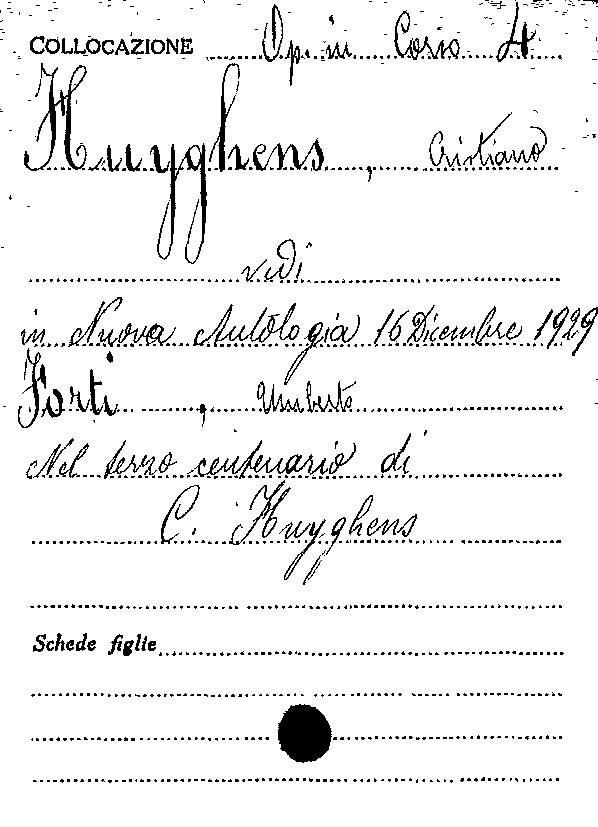 COLLOCAZIONE Op. in Corso 4
Huyghens, Cristiano
vedi
in Nuova Antologia 16 Dicembre 1929
Forti, Umberto
Nel terzo centenario di
C. Huyghens
Schede figlie